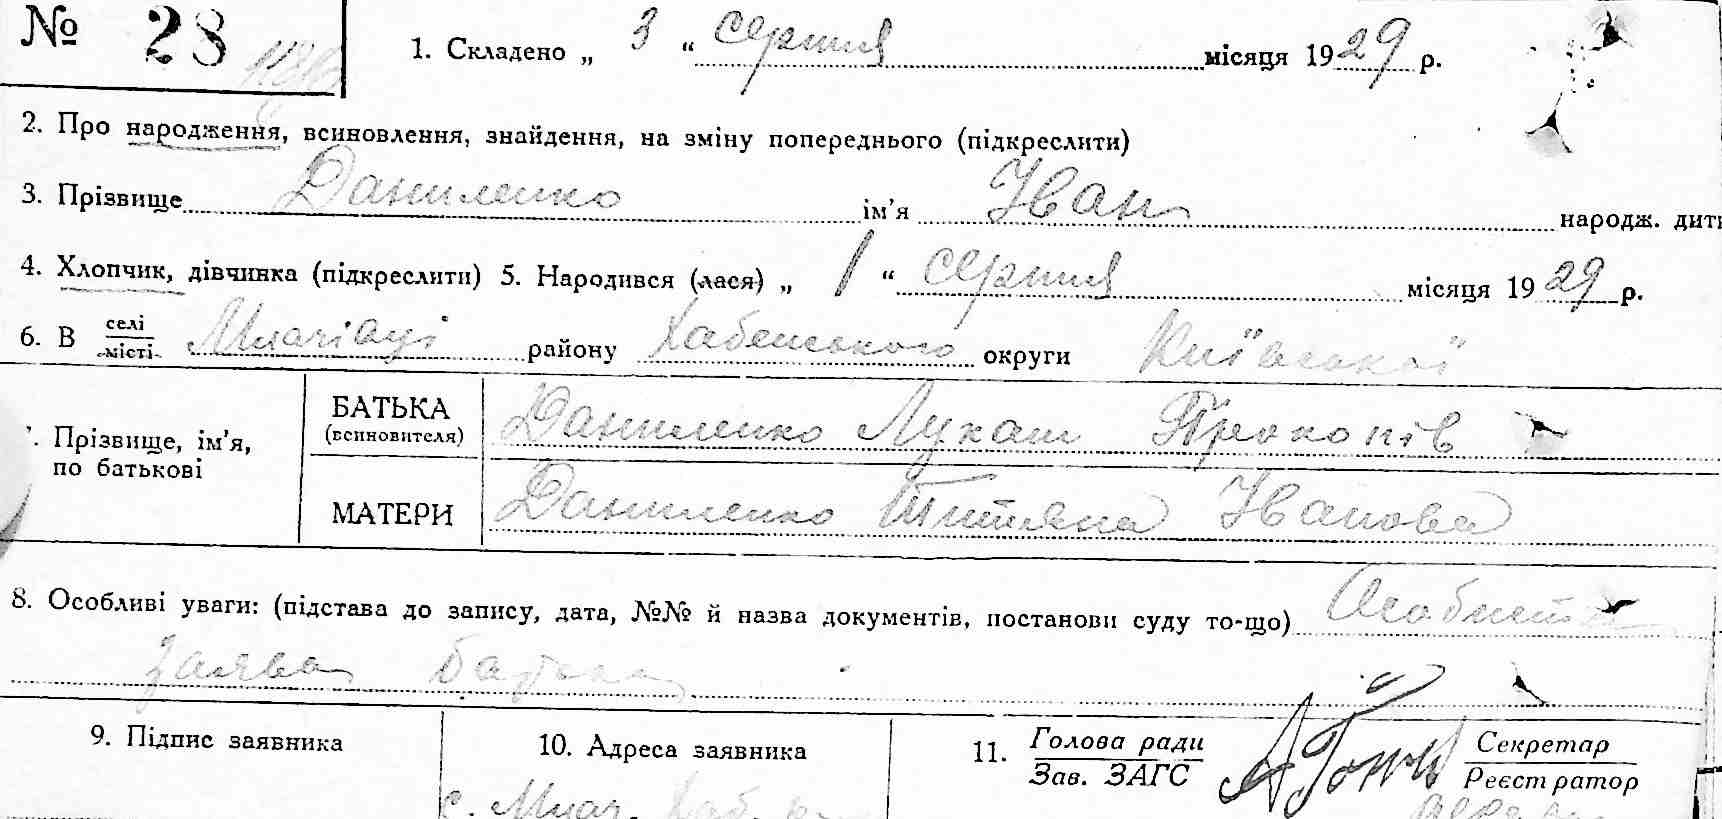 № 28
1. Складено „ 3 “ серпня місяця 1929 р.
2. Про народження, всиновлення, знайдення, на зміну попереднього (підкреслити)
3. Прізвище Даниленко ім’я Іван народж. дит
4. Хлопчик, дівчинка (підкреслити) 5. Народився (лася) „ 1 “ серпня місяця 1929 р.
6. В селі місті Млачівці району Хабенського округи Київської
7. Прізвище, ім’я, по батькові
БАТЬКА (всиновителя) Даниленко Лукаш Прокопів
МАТЕРИ Даниленко Титяна Іванова
8. Особливі уваги: (підстава до запису, дата, №№ й назва документів, постанови суду то-що) Особиста
заява батька
9. Підпис заявника 10. Адреса заявника 11. Голова ради Секретар
Зав. ЗАГС Реєстратор
с. Млач.